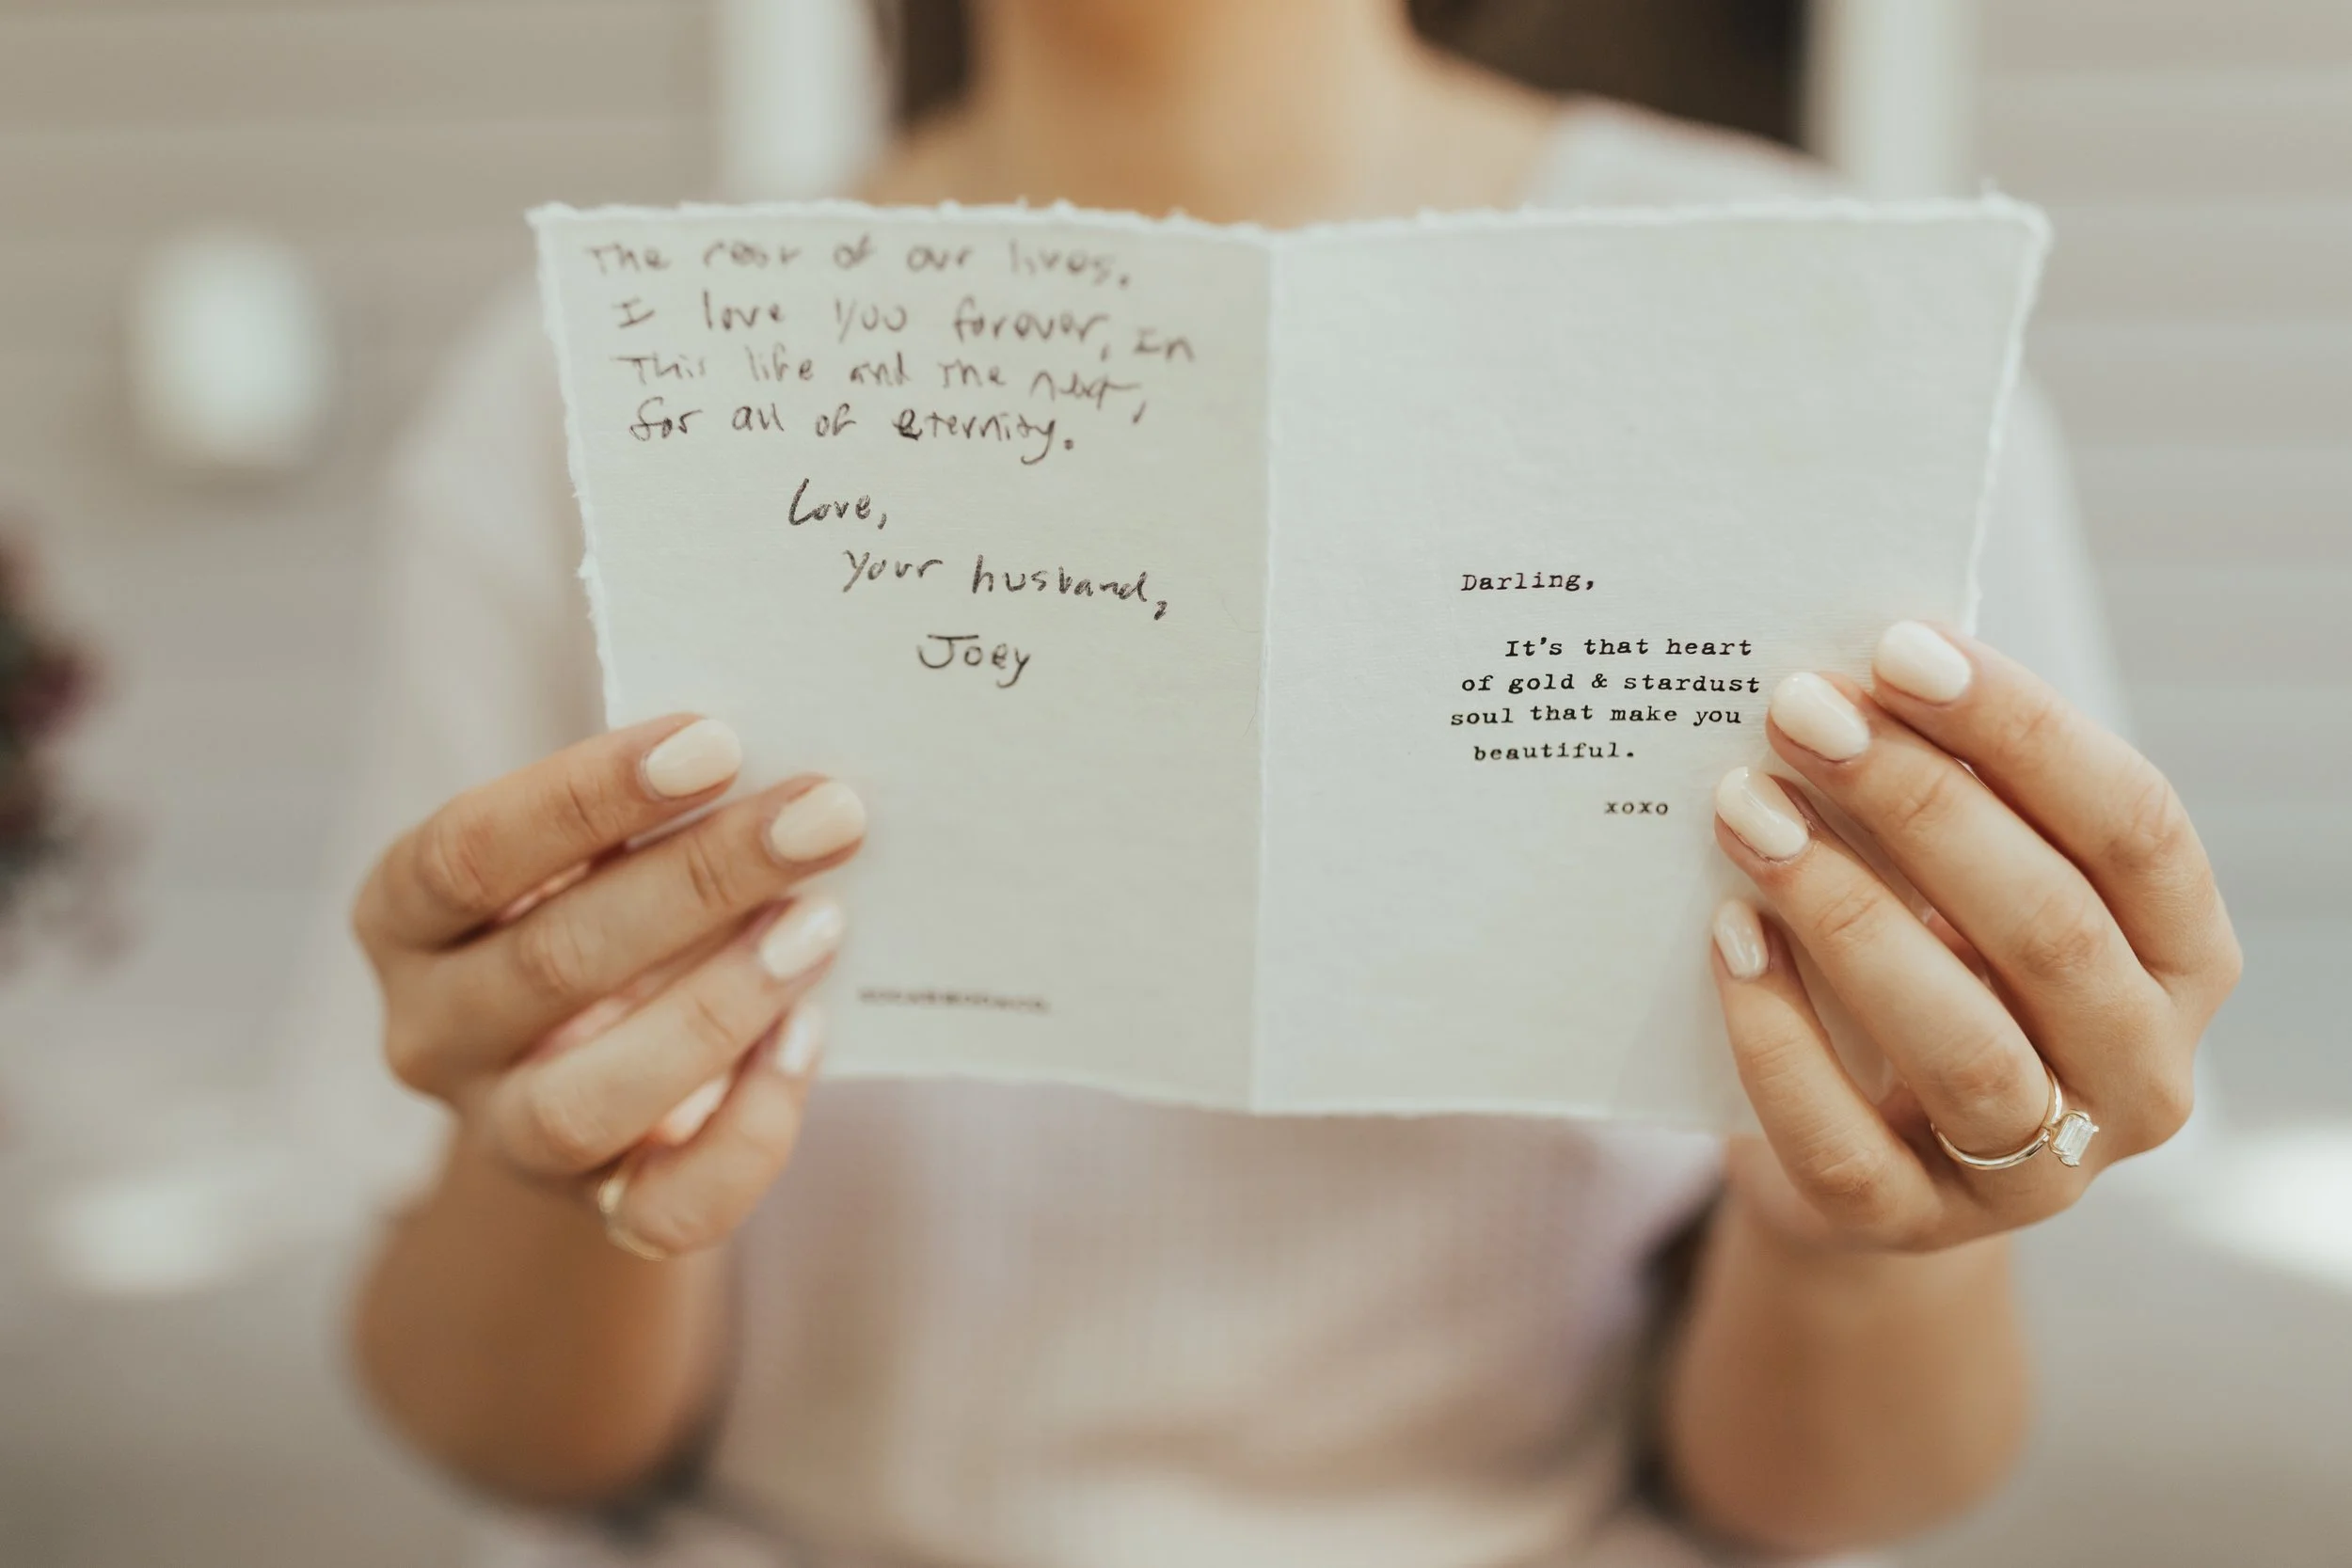 The rest of our lives.
I love you forever, In
This life and the next,
for all of eternity.
Love,
your husband,
Joey
Darling,
It's that heart
of gold & stardust
soul that make you
beautiful.
xoxo